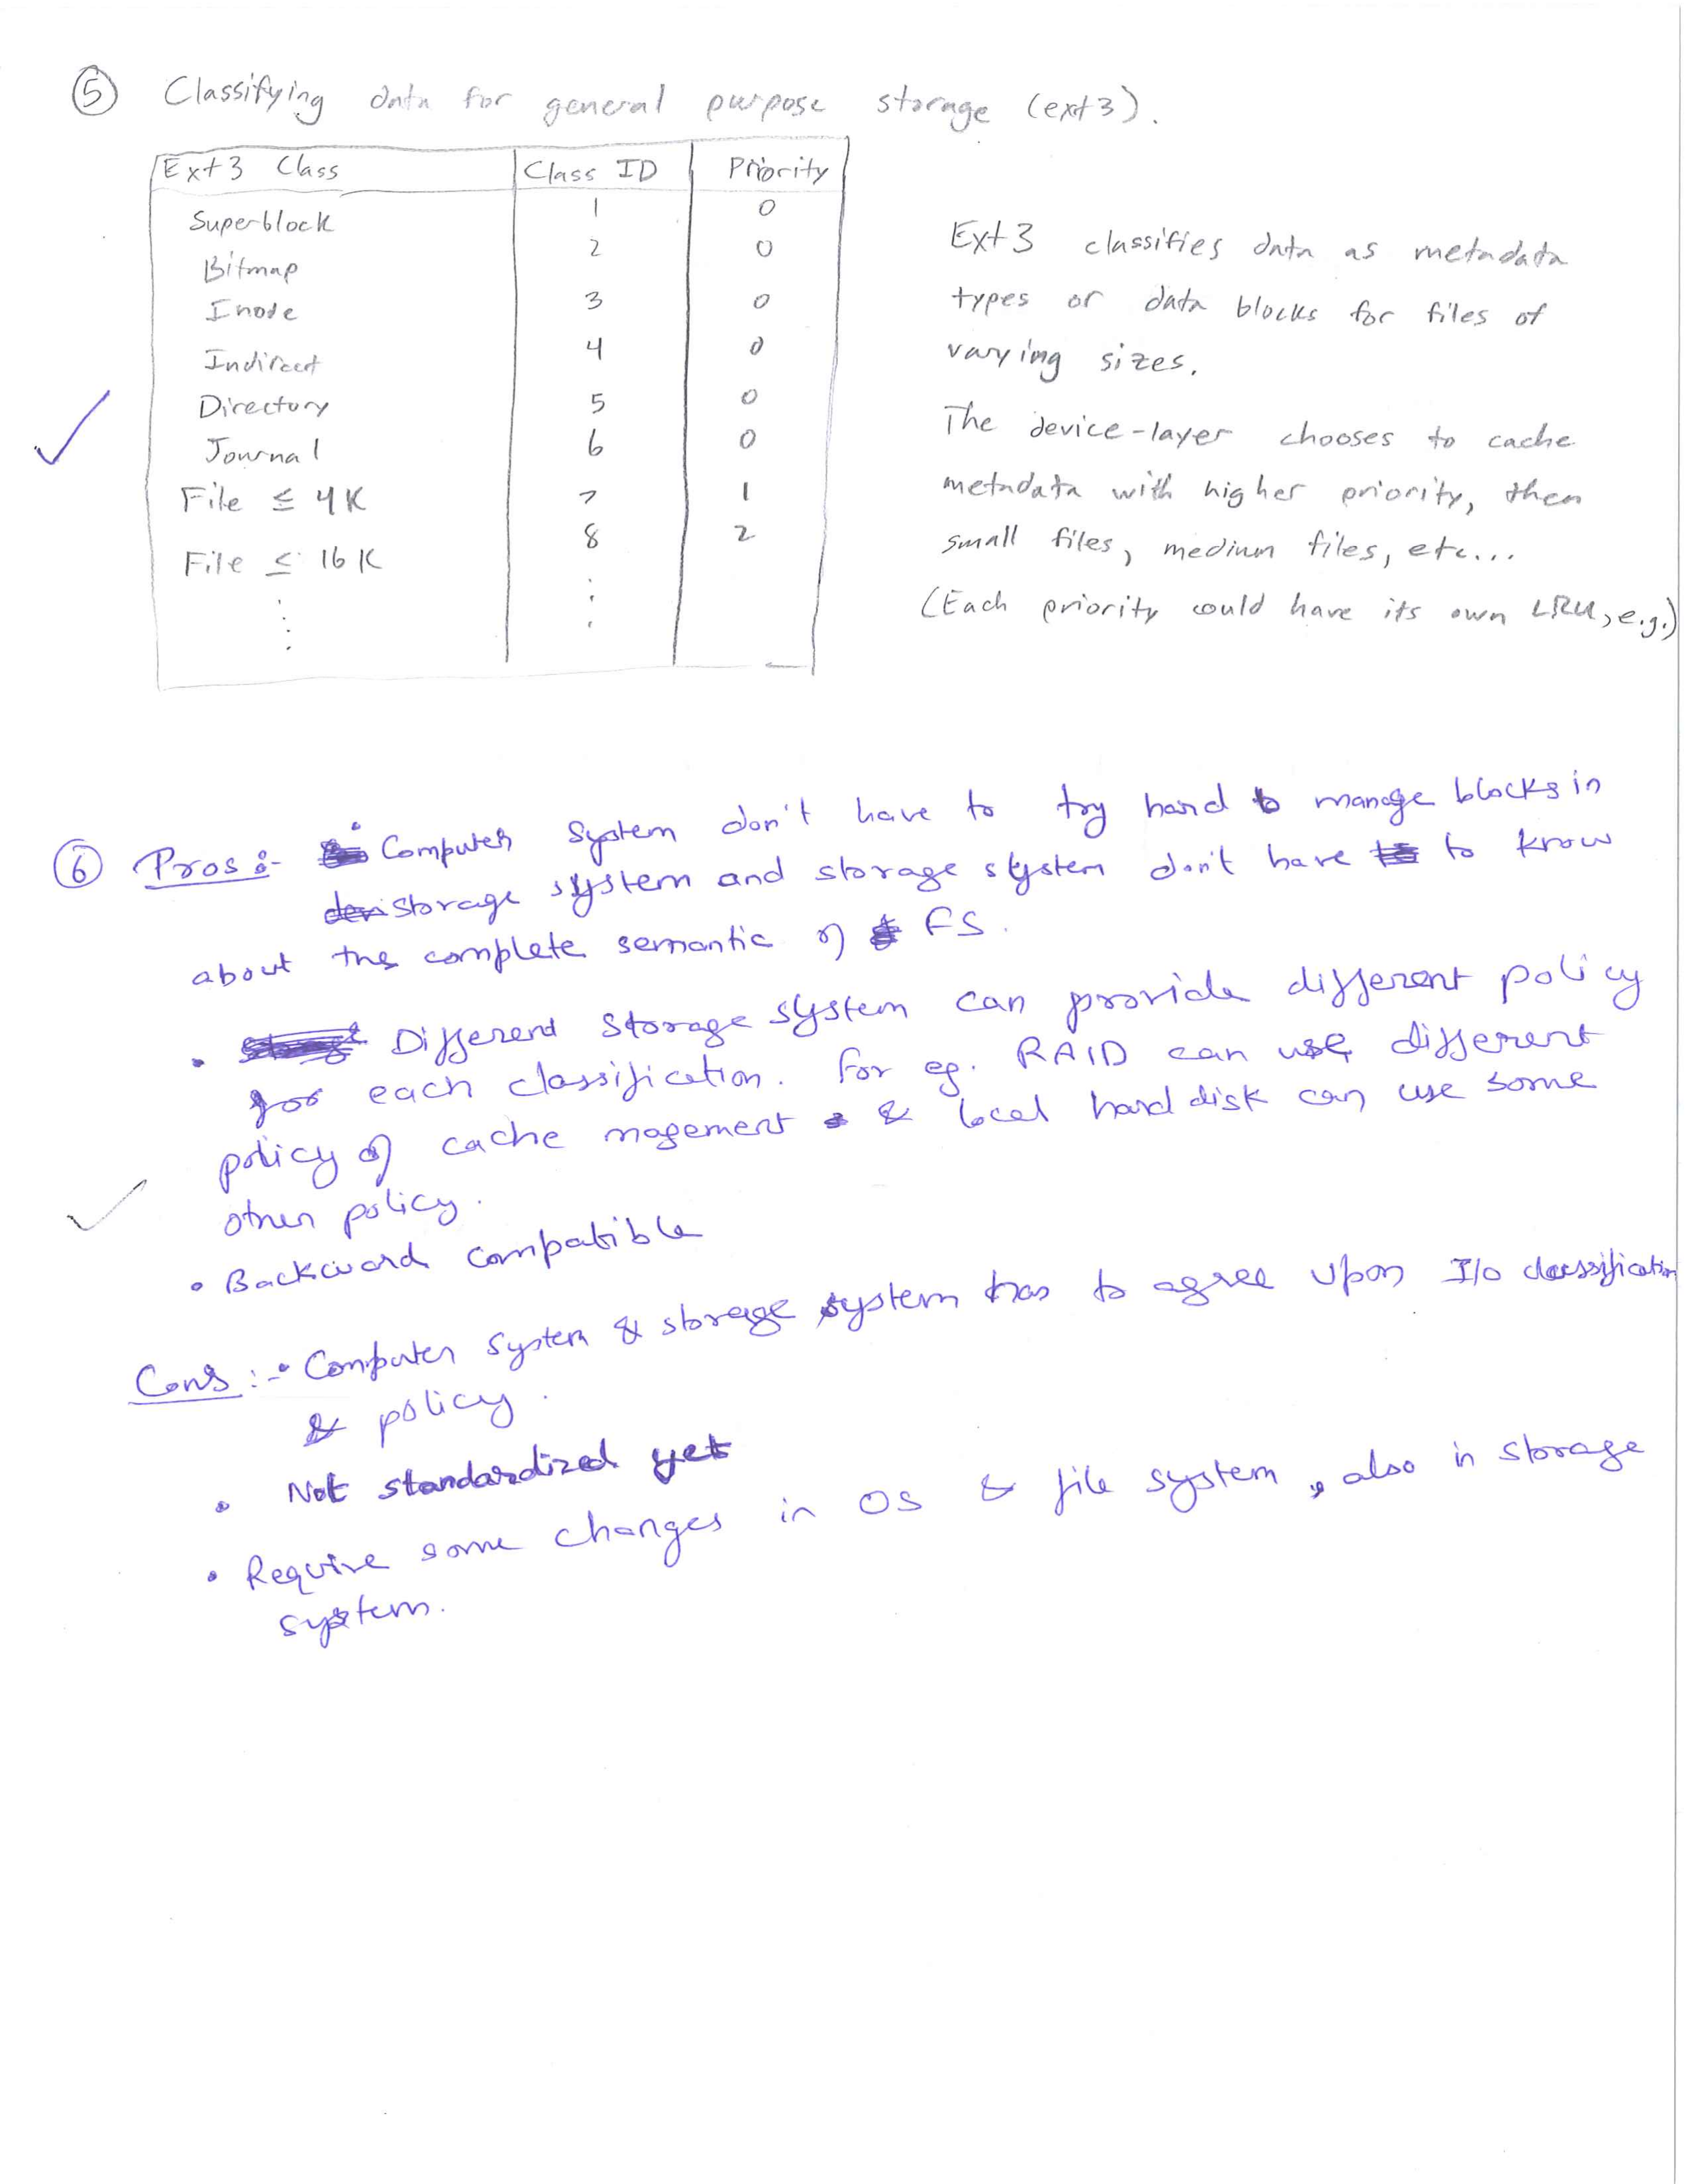 ⑤ Classifying data for general purpose storage (ext3).
Ext3 Class Class ID Priority
Superblock 1 0
Bitmap 2 0
Inode 3 0
Indirect 4 0
Directory 5 0
Journal 6 0
File ≤ 4K 7 1
File ≤ 16K 8 2
Ext3 classifies data as metadata
types or data blocks for files of
varying sizes.
The device-layer chooses to cache
metadata with higher priority, then
small files, medium files, etc...
(Each priority could have its own LRU, e.g.)
⑥ Pros :- • Computer system don't have to try hard to manage blocks in
storage system and storage system don't have to know
about the complete semantic of FS.
• Different storage system can provide different policy
for each classification. For eg. RAID can use different
policy of cache magement & local hard disk can use some
other policy.
• Backward compatible
Cons :- • Computer system & storage system has to agree upon I/o classification
& policy.
• Not standardized yet
• Require some changes in OS & file system, also in storage
system.